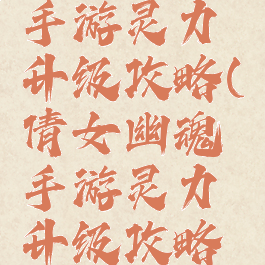 手游灵力
升级攻略(
倩女幽魂
手游灵力
升级攻略